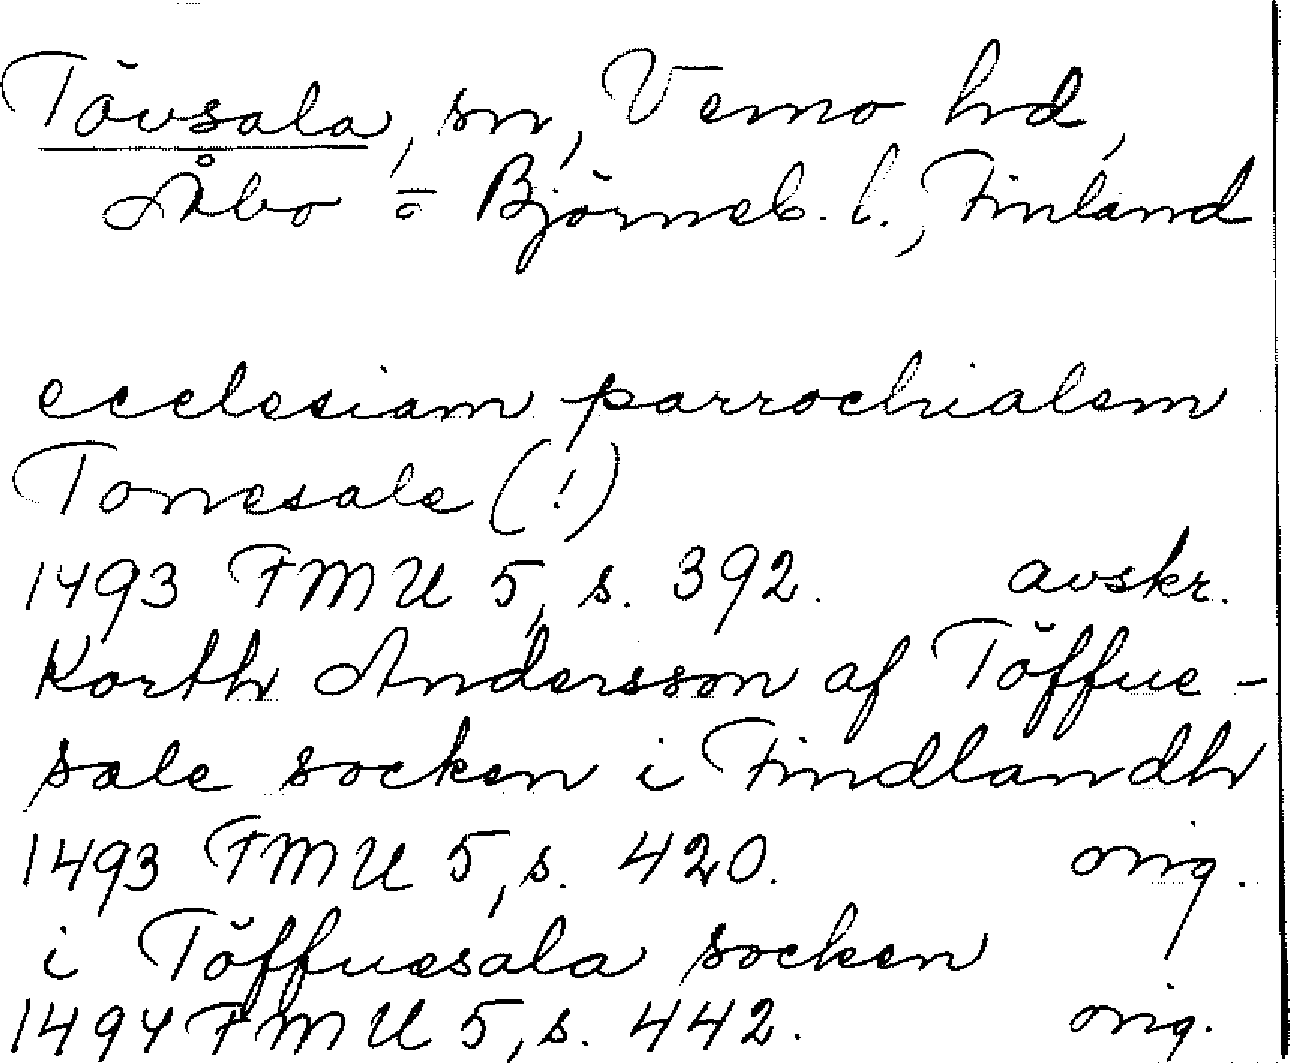 Tövsala, sn, Vemo hd,
Åbo = Björneb. l., Finland
ecclesiam parrochialem
Tonesale (!)
1493 FMU 5, s. 392. avskr.
Korth Andersson af Töffue-
sale socken i Findlandh
1493 FMU 5, s. 420. orig.
i Töffuesala socken
1494 FMU 5, s. 442. orig.